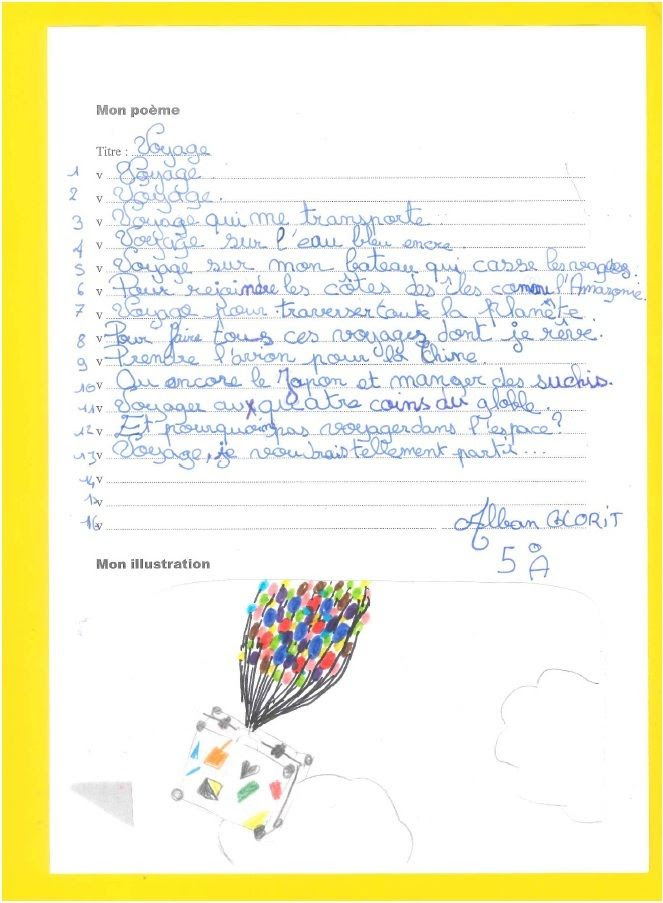 Mon poème
Titre : Voyage
1 v Voyage.
2 v Voyage.
3 v Voyage qui me transporte
4 v Voyage sur l'eau bleu encre.
5 v Voyage sur mon bateau qui casse les vagues.
6 v Pour rejoindre les côtes des îles comme l'Amazonie.
7 v Voyage pour traverser toute la planète.
8 v Pour faire tous ces voyages dont je rêve.
9 v Prendre l'avion pour la Chine
10 v Ou encore le Japon et manger des suchis.
11 v Voyager aux quatre coins du globle.
12 v Et pourquoi pas voyager dans l'espace?
13 v Voyage, je voudrais tellement parti...
14 v
15 v
16 v
Alban
5°A
Mon illustration